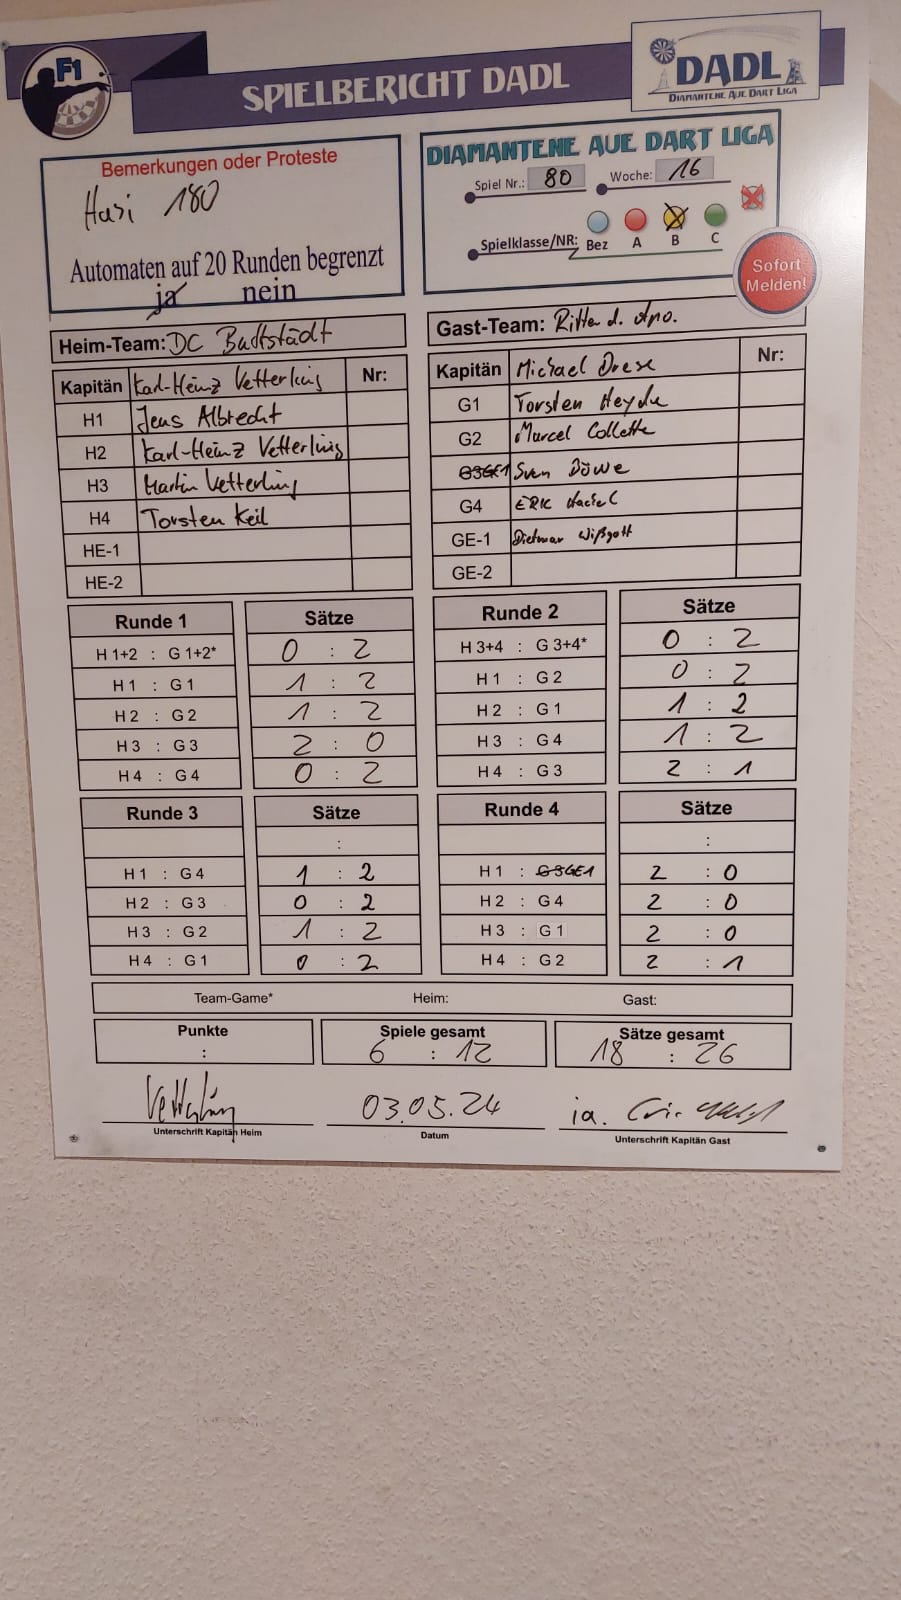 F1
SPIELBERICHT DADL
DADL
DIAMANTENE AUE DART LIGA
Bemerkungen oder Proteste
Husi 180
Automaten auf 20 Runden begrenzt
ja nein
DIAMANTENE AUE DART LIGA
Spiel Nr.: 80 Woche: 16
Spielklasse/NR: Bez A B C
Sofort
Melden!
Heim-Team: DC Buttstädt
Kapitän Karl-Heinz Vetterling Nr:
H1 Jens Albrecht
H2 Karl-Heinz Vetterling
H3 Martin Vetterling
H4 Torsten Keil
HE-1
HE-2
Gast-Team: Ritter d. Apo.
Kapitän Michael Drese Nr:
G1 Torsten Heyde
G2 Marcel Collette
G3 GE1 Sven Düwe
G4 ERIK
GE-1 Dietmar Wißgott
GE-2
Runde 1 Sätze
H 1+2 : G 1+2* 0 : 2
H 1 : G 1 1 : 2
H 2 : G 2 1 : 2
H 3 : G 3 2 : 0
H 4 : G 4 0 : 2
Runde 2 Sätze
H 3+4 : G 3+4* 0 : 2
H 1 : G 2 0 : 2
H 2 : G 1 1 : 2
H 3 : G 4 1 : 2
H 4 : G 3 2 : 1
Runde 3 Sätze
:
H 1 : G 4 1 : 2
H 2 : G 3 0 : 2
H 3 : G 2 1 : 2
H 4 : G 1 0 : 2
Runde 4 Sätze
:
H 1 : G3 GE1 2 : 0
H 2 : G 4 2 : 0
H 3 : G 1 2 : 0
H 4 : G 2 2 : 1
Team-Game* Heim: Gast:
Punkte
:
Spiele gesamt
6 : 12
Sätze gesamt
18 : 26
Vetterling
Unterschrift Kapitän Heim
03.05.24
Datum
ia.
Unterschrift Kapitän Gast